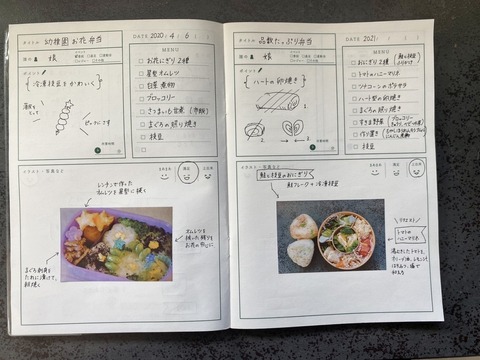 幼稚園 お花弁当
DATE 2020 / 4 / 6
娘
MENU
お花にぎり2種
星型オムレツ
白菜煮物
ブロッコリー
さつまいも甘煮
まぐろの照り焼き
枝豆
ポイント
冷凍枝豆をかわいく
ピックにさす
レンチンで作った
オムレツを星型に抜く
オムレツを
お花の形に
まぐろ刺身を
たれに漬けて、
軽く焼く
品数たっぷり弁当
DATE 2021
娘
MENU
おにぎり2種
トマトのハニーマリネ
ツナコーンのポテサラ
ハート型の卵焼き
まぐろの照り焼き
すきま野菜
ブロッコリー
作り置き
枝豆
ポイント
ハートの卵焼き
1.
2.
鮭と枝豆のおにぎり
鮭フレーク + 冷凍枝豆
リクエスト
トマトの
ハニーマリネ
湯むきしたトマトを、
オリーブ油、レモン汁
はちみつ、塩で
和える